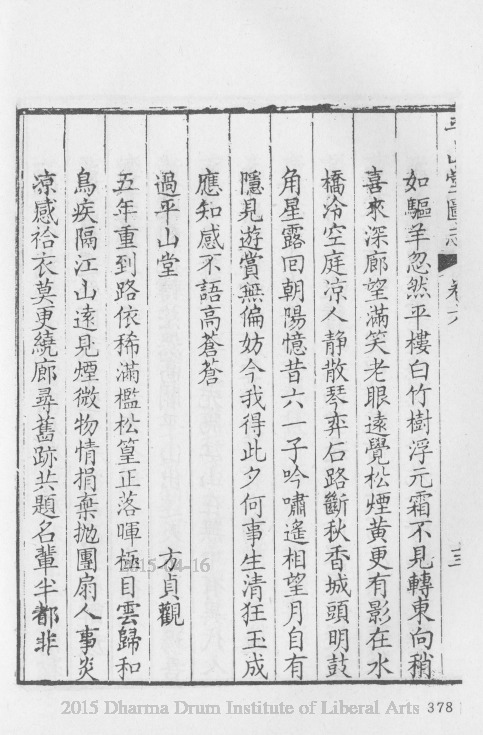 平山堂圖志 卷六 三
如驅羊忽然平樓白竹樹浮元霜不見轉東向稍
喜來深廊望滿笑老眼遠覺松煙黃更有影在水
橋冷空庭凉人靜散琴弈石路斷秋香城頭明鼓
角星露回朝陽憶昔六一子吟嘯遙相望月自有
隱見遊賞無偏妨今我得此夕何事生清狂玉成
應知感不語高蒼蒼
過平山堂 方貞觀
五年重到路依稀滿檻松篁正落暉極目雲歸和
鳥疾隔江山遠見煙微物情捐棄拋團扇人事炎
凉感袷衣莫更繞廊尋舊跡共題名輩半都非
2015-04-16
2015 Dharma Drum Institute of Liberal Arts 378